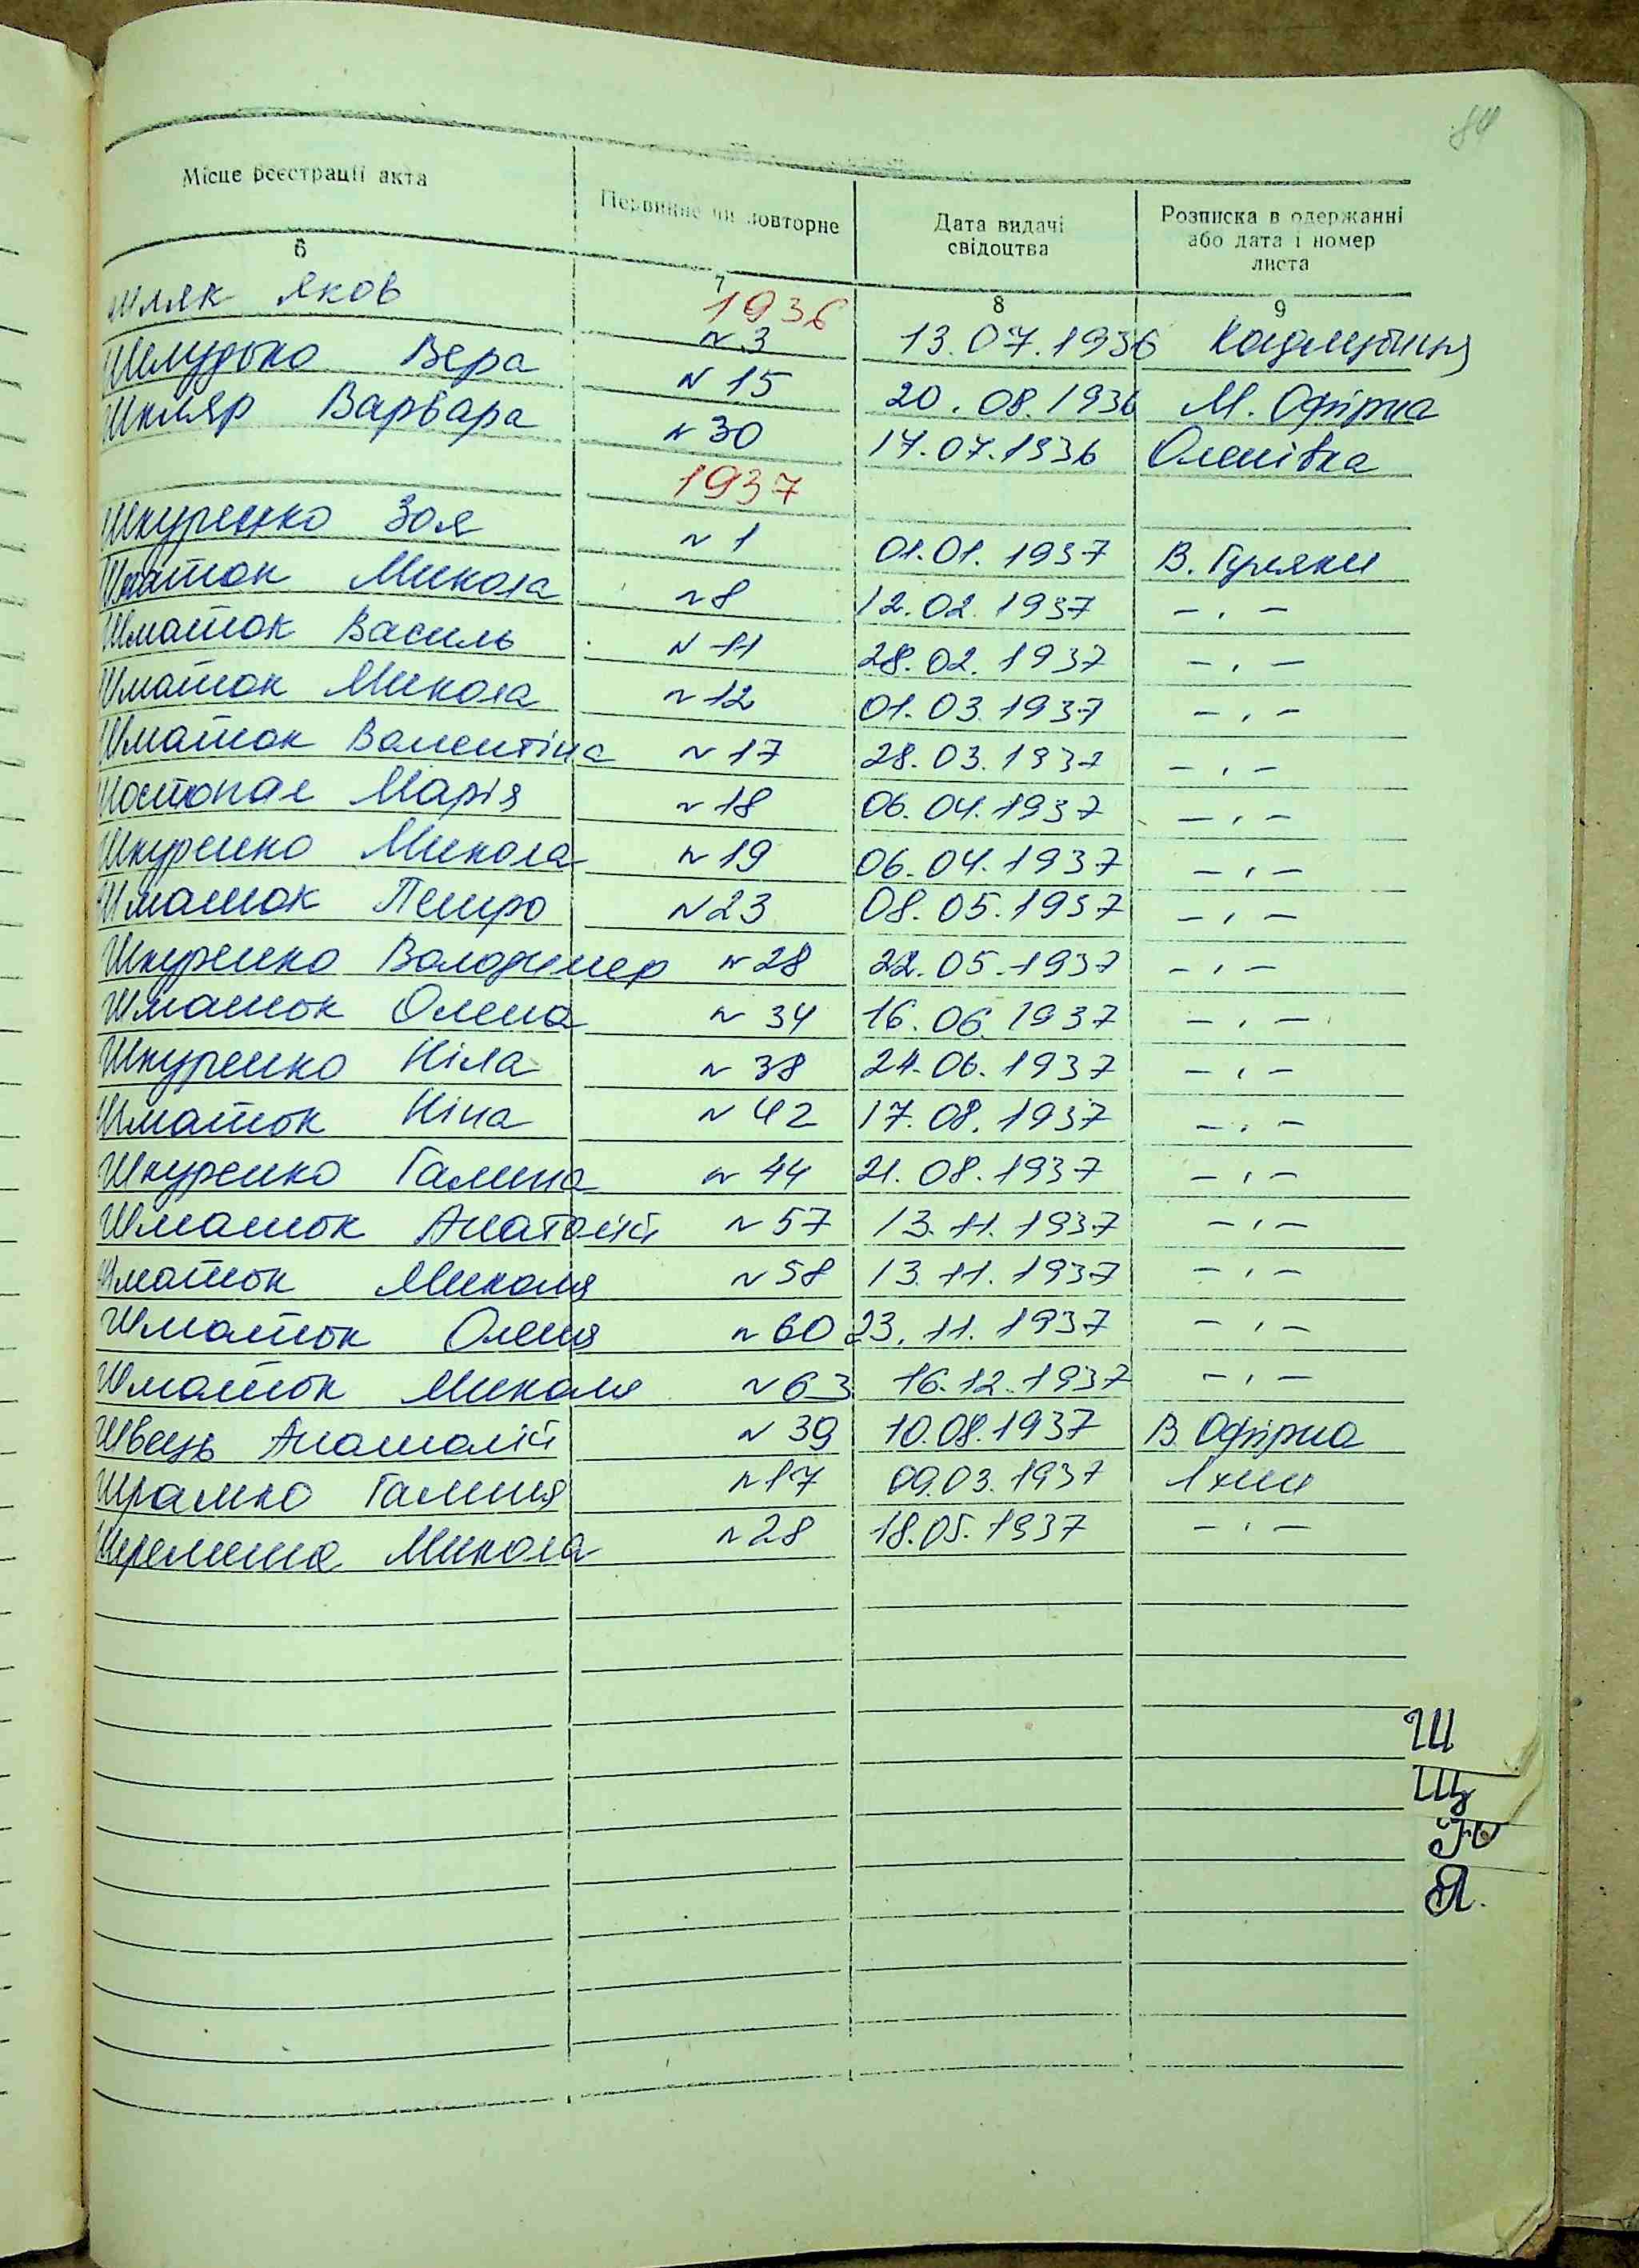 84
Місце реєстрації акта Первинне чи повторне Дата видачі свідоцтва Розписка в одержанні або дата і номер листа
6 7 8 9
1936
Шляк Яков N 3 13.07.1936
Шелудько Вера N 15 20.08.1936 М. Офірна
Шкляр Варвара N 30 17.07.1936 Оленівка
1937
Шкуренко Зоя N 1 01.01.1937 В. Гуляки
Шматок Микола N 8 12.02.1937 – , –
Шматок Василь N 11 28.02.1937 – , –
Шматок Микола N 12 01.03.1937 – , –
Шматок Валентіна N 17 28.03.1937 – , –
Шостопал Марія N 18 06.04.1937 – , –
Шкуренко Микола N 19 06.04.1937 – , –
Шматок Петро N 23 08.05.1937 – , –
Шкуренко Володимер N 28 22.05.1937 – , –
Шматок Олена N 34 16.06.1937 – , –
Шкуренко Ніла N 38 24.06.1937 – , –
Шматок Ніна N 42 17.08.1937 – , –
Шкуренко Галина N 44 21.08.1937 – , –
Шматок Анатолій N 57 13.11.1937 – , –
Шматок Миколя N 58 13.11.1937 – , –
Шматок Оленя N 60 23.11.1937 – , –
Шматок Миколя N 63 16.12.1937 – , –
Швець Анатолій N 39 10.08.1937 В. Офірна
Шрамко Галиня N 17 09.03.1937
Шеремета Микола N 28 18.05.1937 – , –
Ш
Щ
Ю
Я.